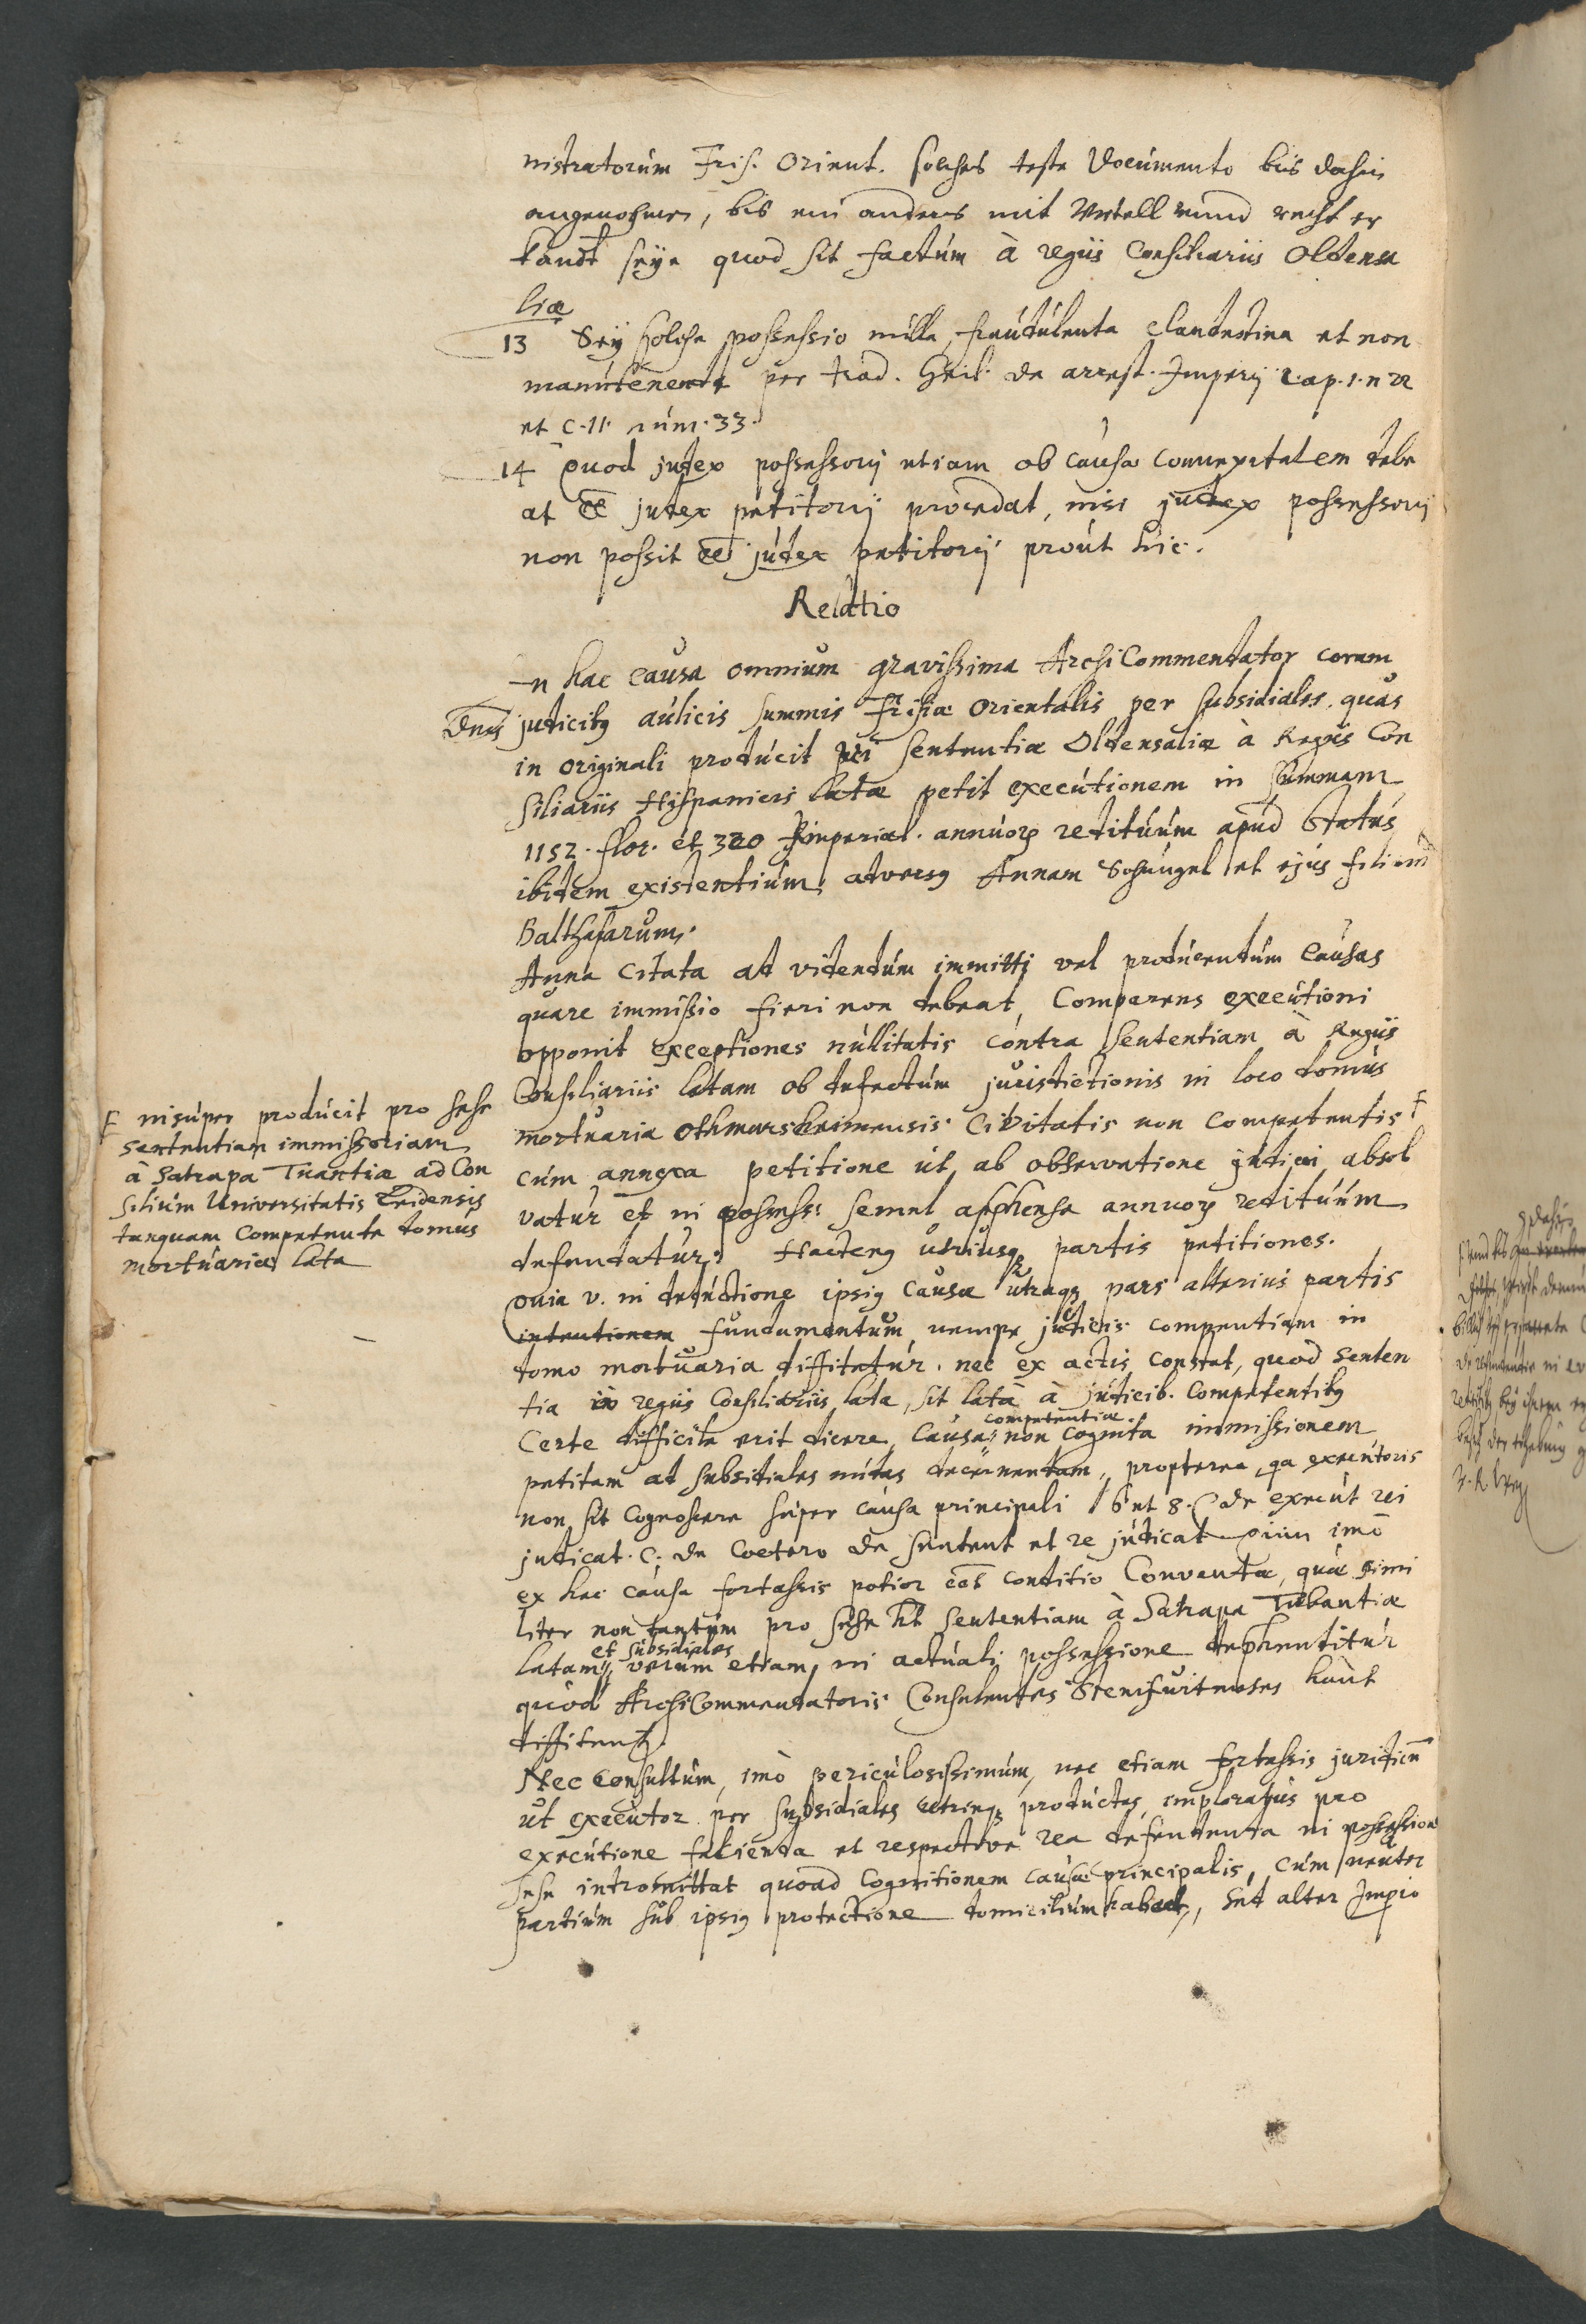 nistratorum Fris. Orient. solches teste Documento bis dahin
angenohmen, bis ein anders mit Urtell unnd recht er
kandt seye quod sit factum à regiis Consiliariis Oldensa
liæ
13 Sey solche possessio nulla, fraudulenta clandestina et non
manutenenda per trad. Geil. de arrest. Imperij cap. 1. n 22
et c. 11. num. 33.
14 Quod judex possessorij etiam ob causæ connexitatem debe
at ee judex petitorij procedat, nisi judex possessorij
non possit ee judex petitorij prout hic.
Relatio
In hac causa omnium gravissima ArchiCommendator coram
Dnis judicibus aulicis summis Frisiæ Orientalis per subsidiales quas
in originali producit rei sententiæ Oldensaliæ à Regiis Con
siliariis Hispanicis latæ petit executionem in summam
1152. flor. et 320 Imperial. annuorum redituum apud Status
ibidem existentium, adversus Annam Schungel et ejus filium
Balthasarum.
Anna citata ad videndum immitti vel producendum causas
quare immissio fieri non debeat, Comparens executioni
opponit exceptiones nullitatis contra sententiam à Regiis
Consiliariis latam ob defectum jurisdictionis in loco domus
mortuariæ Othmarsheimensis Civitatis non competentis F
F insuper producit pro sese
sententiam immissoriam
à Satrapa Tuantiæ ad Con
silium Universitatis
tanquam Competente domus
mortuariæ lata
cum annexa petitione ut ab observatione judicij absol
vatur et in possess: semel apphensa annuorum redituum
defendatur. Hactenus utriusq partis petitiones.
Quia v. in deductione ipsius causæ utraq pars alterius partis
intentionem fundamentum nempe judicis competentiam in
domo mortuaria diffitatur. nec ex actis constat, quod senten
tia à regiis Consiliariis lata, sit lata à judicib. Competentibus
Certe difficile erit dicere, Causæ competentiæ non cognita immissionem
petitam ad subsidiales nudas decernendam, propterea, qa executoris
non sit cognoscere super causa principali l 6 et 8. C de execut rei
judicat. C. de Coetero de sentent et re judicat oim imò
ex hac causa fortassis potior eet conditio Conventæ, quæ simi
liter non tantum pro sese ht sententiam à Satrapa Tubantiæ
latam et subsidiales, verum etiam in actuali possessione dephenditur
quod ArchiCommendatoris Consulentes Stenfurtenses haut
diffitentur.
Nec consultum, imò periculosissimum, nec etiam fortassis juridicum
ut executor per subsidiales utrinq productas imploratus pro
executione facienda et respective rea defendenda in possessione
sese intromittat quoad cognitionem causæ principalis, cum neuter
partium sub ipsius protectione domicilium habeat, sed alter Impio